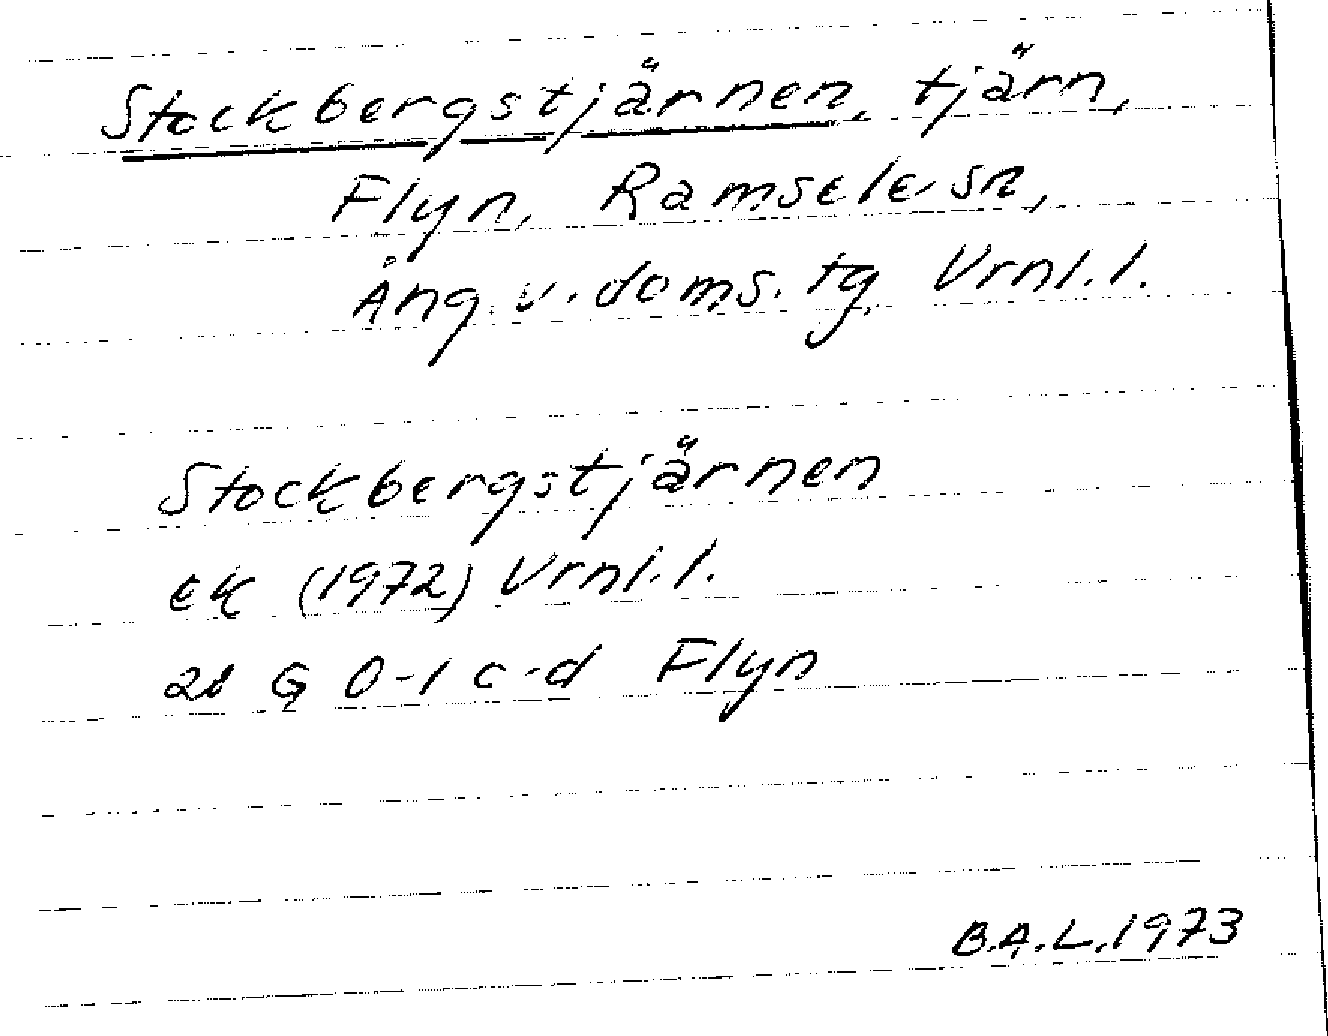 Stockbergstjärnen, tjärn,
Flyn, Ramsele sn,
Ång. v. doms. tg, Vrnl. l.
Stockbergstjärnen
ek (1972) Vrnl. l.
G 0-1 c-d Flyn
B.A.L. 1973